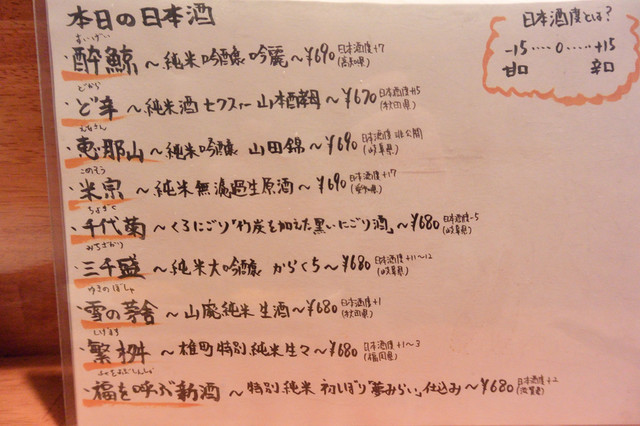 本日の日本酒
日本酒度とは?
-15‥‥0‥‥+15
甘口 辛口
すいげい
・酔鯨 ~純米吟醸 吟麗~¥690 日本酒度+7 (高知県)
どから
・ど辛 ~純米酒 セクスィー山本酒輔~¥670 日本酒度+15 (秋田県)
えなさん
・恵那山 ~純米吟醸 山田錦~¥690 日本酒度 非公開 (岐阜県)
このそう
・米宗 ~純米無濾過生原酒~¥690 日本酒度+17 (愛知県)
ちよぎく
・千代菊 ~くろにごり「竹炭を加えた黒いにごり酒」~¥680 日本酒度-5 (岐阜県)
みちさかり
・三千盛 ~純米大吟醸 からくち~¥680 日本酒度+11~12 (岐阜県)
ゆきのぼうしゃ
・雪の茅舎 ~山廃純米 生酒~¥680 日本酒度+1 (秋田県)
しげます
・繁桝 ~雄町特別純米生々~¥680 日本酒度+1~3 (福岡県)
・福を呼ぶ新酒 ~特別純米 初しぼり「夢みらい」仕込み~¥680 日本酒度+2 (滋賀県)